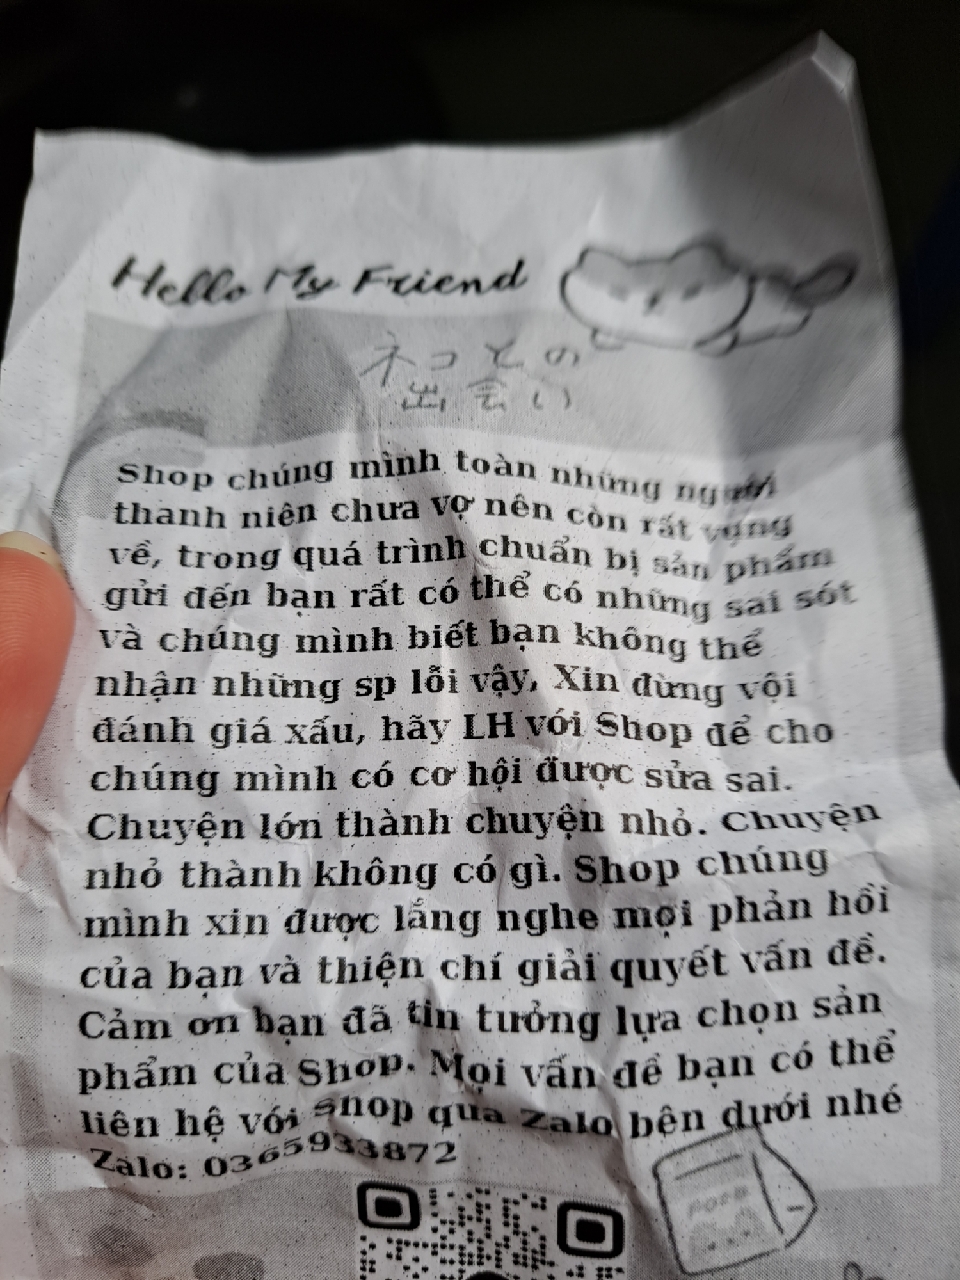 Hello My Friend
ネコとの
出会い
Shop chúng mình toàn những người
thanh niên chưa vợ nên còn rất vụng
về, trong quá trình chuẩn bị sản phẩm
gửi đến bạn rất có thể có những sai sót
và chúng mình biết bạn không thể
nhận những sp lỗi vậy, Xin đừng vội
đánh giá xấu, hãy LH với Shop để cho
chúng mình có cơ hội được sửa sai.
Chuyện lớn thành chuyện nhỏ. Chuyện
nhỏ thành không có gì. Shop chúng
mình xin được lắng nghe mọi phản hồi
của bạn và thiện chí giải quyết vấn đề.
Cảm ơn bạn đã tin tưởng lựa chọn sản
phẩm của Shop. Mọi vấn đề bạn có thể
liên hệ với Shop qua Zalo bên dưới nhé
Zalo: 0365933872